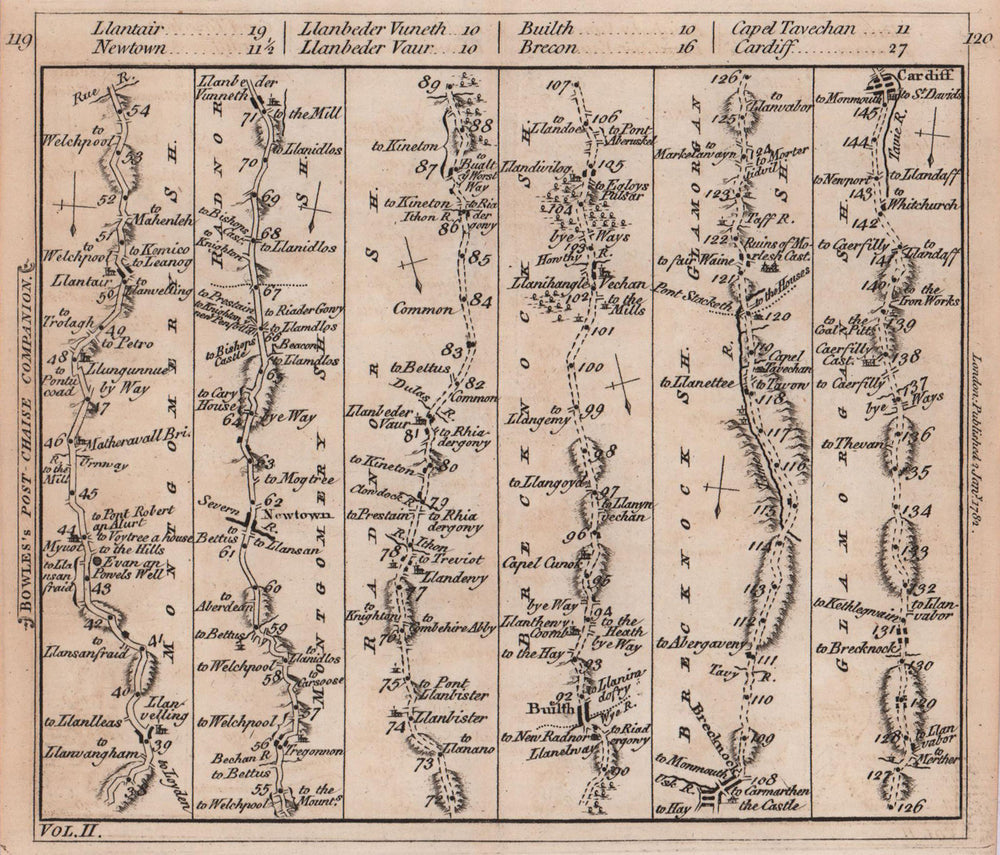 119
120
Llantair 19
Newtown 11½
Llanbeder Vuneth 10
Llanbeder Vaur 10
Builth 10
Brecon 16
Capel Tavechan 11
Cardiff 27
BOWLES's POST-CHAISE COMPANION.
London: Published 2 Jany 1, 1782.
MONTGOMERY SH.
Rue R.
54
to Welchpool
53
52
to Mahenleh
51
to Welchpool
to Kemico
to Leanog
Llantair
50
Llanvelling
to Trolagh
49
to Petro
48
to Pontu coad
Llungunnue
by Way
47
46
Matheravall Bri.
R. Urnway
to the Mill
45
to Pont Robert
an Alurt
44
to Voytree a house
Myuot
to the Hills
to Lla nsan fraid
Evan an Powels Well
43
42
41
to Llansanfraid
40
Llanvelling
to Llanlleas
39
to Llanvangham
to Loyden
38
RADNOR SH.
MONTGOMERY SH.
Llanbeder Vunneth
71
to the Mill
70
to Llanidlos
69
to Bishops Cast.
68
to Knighton
to Llanidlos
67
to Prestain
to Riader Gowy
to Knighton
to Llamdlos
66
Beacon
to Bishops Castle
to Llamdlos
65
to Cary House
64
bye Way
63
to Mogtree
62
Severn R.
Newtown
to Bettus
61
to Llansan
60
to Aberdean
59
to Bettus
to Llanidlos
to Welchpool
58
to Carsoose
57
to Welchpool
56
Tregonmon
Bechan R
to Bettus
55
to the Mounts
to Welchpool
RADNOR SH.
89
88
to Kineton
to Bualt ye Worst Way
87
to Kineton
to Riadergony
Ithon R.
86
85
84
Common
83
to Bettus
82
Dulas R.
Common
Llanbeder Vaur
81
to Rhiadergowy
80
to Kineton
Clowdock R.
79
to Prestain
to Rhiadergony
R. Ithon
78
to Treviot
Llandewy
77
to Knighton
76
to Combehire Abby
75
to Pont Llanbister
Llanbister
74
to Llanano
73
7
BRECKNOCK SH.
107
106
to Llandoe
to Pont Aberuskel
Llandivilog
105
to Egloys Pulsar
104
bye Ways
103
Howthy R.
Llanihangle Vechan
102
to the Mills
101
100
99
to Llangemy
98
to Llangoya
97
to Llanyn vechan
96
Capel Cunok
95
94
bye Way
Llantheny Coomb
to the Heath
bye Way
to the Hay
93
92
to Llanira dofry
Builth
Wye R.
to New Radnor
to Riadergowy
Llanelway
90
GLAMORGAN SH.
BRECKNOCK SH.
126
to Llanvabor
125
to Markelavayn
124
to Morter tidvil
123
Taff R.
122
Ruins of Morlesh Cast.
to fair Waine
121
Pont Stacketh
to the Houses
120
R.
119
Capel Tavechan
to Llanettee
to Tavow
118
117
116
115
114
113
112
to Abergaveny
111
Tavy R.
110
Brecknock
109
to Monmouth
108
Usk R.
to Carmarthen
to Hay
the Castle
GLAMORGAN SH.
Cardiff
to Monmouth
to St Davids
145
Tavie R.
144
to Llandaff
to Newport
143
Whitchurch
142
to Caerfilly
to Llandaff
141
140
to the Iron Works
to the Coal Pitts
139
Caerfilly Cast.
138
to Caerfilly
137
bye Ways
136
to Thevan
135
134
133
132
to Kethlegwain
to Llanvabor
131
to Brecknock
130
129
128
to Llanvabor
to Merther
127
126
VOL. II.